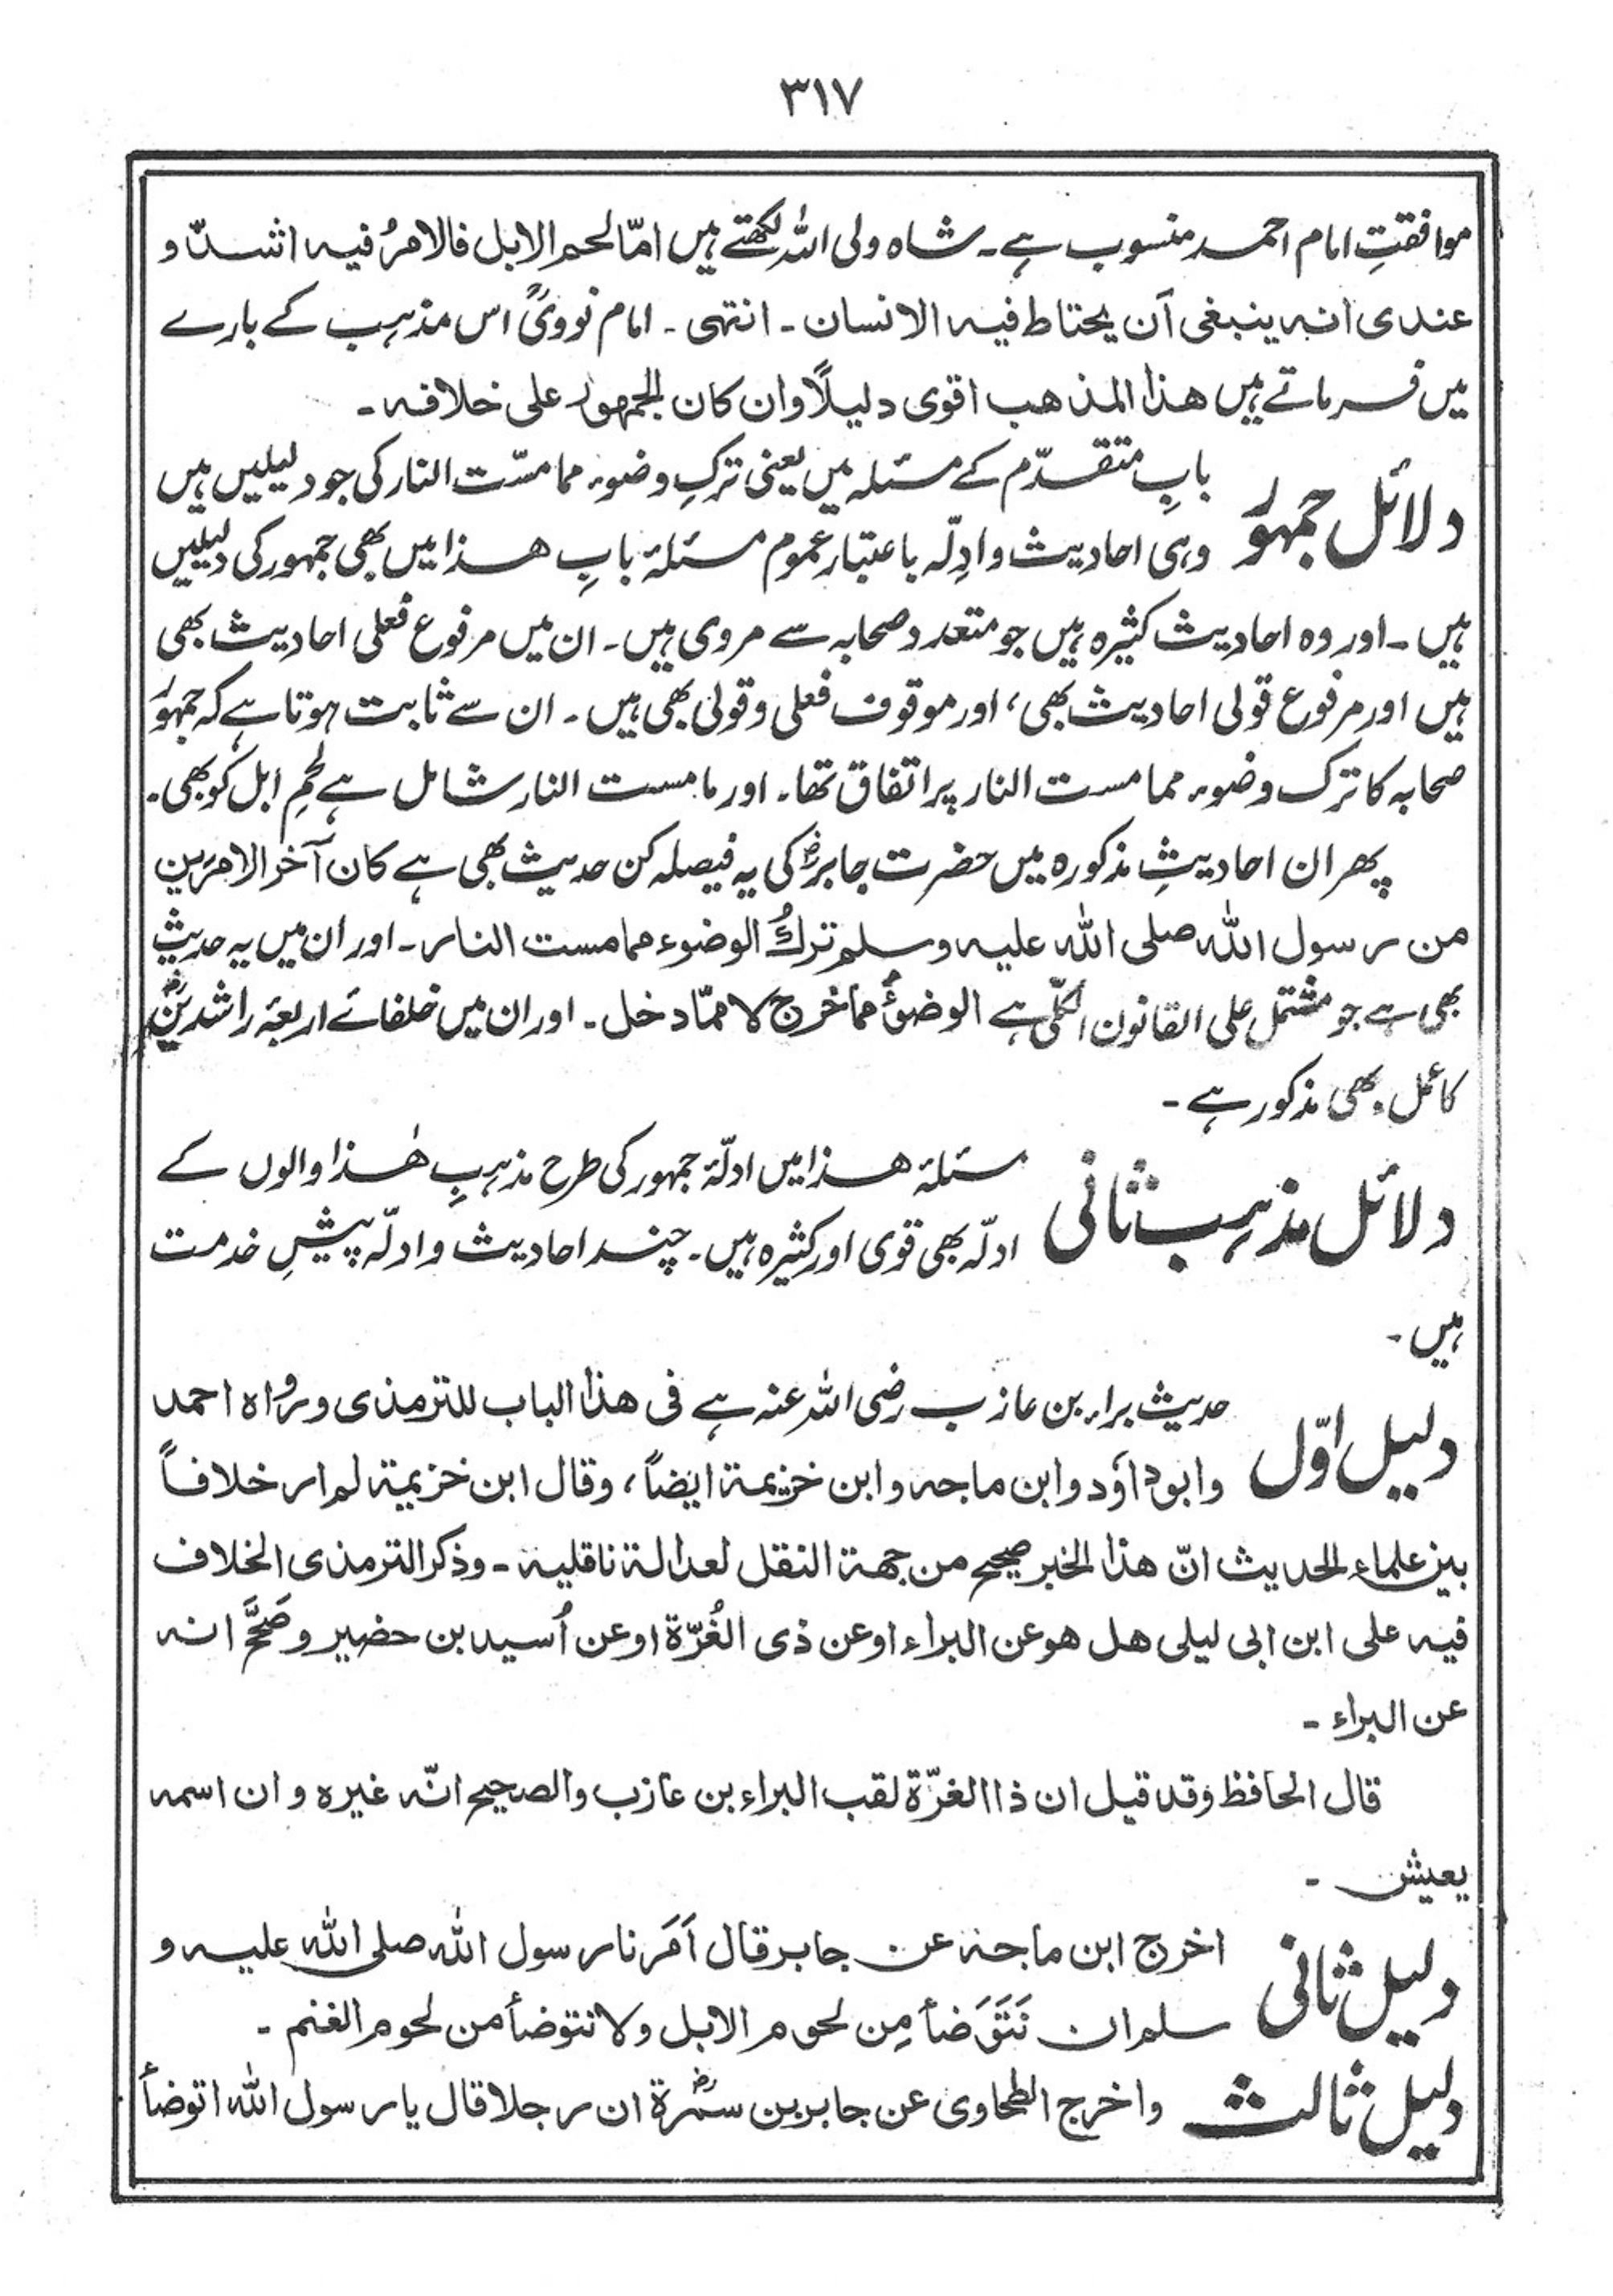 ۳۱۷
موافقتِ امام احمد منسوب ہے۔ شاہ ولی اللہ لکھتے ہیں امّا لحم الابل فالامرُ فیہ اشدّ و
عندی انہ ینبغی اَن یحتاط فیہ الانسان ۔ انتہی ۔ امام نوویؒ اس مذہب کے بارے
میں فرماتے ہیں ھذا المذھب اقوی دلیلًا وان کان الجمھور علی خلافہ ۔
دلائل جمہور باب متقدّم کے مسئلہ میں یعنی ترکِ وضوء مما مسّت النار کی جو دلیلیں ہیں
وہی احادیث وادِلّہ باعتبار عموم مسئلۂ بابِ ھذا میں بھی جمہور کی دلیلیں
ہیں ۔ اور وہ احادیث کثیرہ ہیں جو متعدد صحابہ سے مروی ہیں ۔ ان میں مرفوع فعلی احادیث بھی
ہیں اور مرفوع قولی احادیث بھی ، اور موقوف فعلی و قولی بھی ہیں ۔ ان سے ثابت ہوتا ہے کہ جمہور
صحابہ کا ترک وضوء مما مست النار پر اتفاق تھا ۔ اور ما مست النار شامل ہے لحمِ ابل کو بھی ۔
پھر ان احادیثِ مذکورہ میں حضرت جابرؓ کی یہ فیصلہ کن حدیث بھی ہے کان آخر الامرَین
من رسول اللہ صلی اللہ علیہ وسلم ترکُ الوضوء مما مست النار ۔ اور ان میں یہ حدیث
بھی ہے جو مشتمل علی القانون الکلّی ہے الوضؤُ مما خرج لا ممّا دخل ۔ اور ان میں خلفائے اربعہ راشدینؓ
کا عمل بھی مذکور ہے ۔
دلائل مذہب ثانی مسئلۂ ھذا میں ادلّۂ جمہور کی طرح مذہبِ ھٰذا والوں کے
ادلّہ بھی قوی اور کثیرہ ہیں ۔ چند احادیث وادلّہ پیشِ خدمت
ہیں ۔
دلیل اوّل حدیث براء بن عازب رضی اللہ عنہ ہے فی ھذا الباب للترمذی ورواہ احمد
وابوداؤد وابن ماجہ وابن خزیمة ایضاً ، وقال ابن خزیمة لم ار خلافاً
بین علماء الحدیث انّ ھذا الخبر صحیح من جھة النقل لعدالة ناقلیہ ۔ وذکر الترمذی الخلاف
فیہ علی ابن ابی لیلی ھل ھو عن البراء او عن ذی الغُرّة او عن اُسید بن حضیر وصَحَّحَ انہ
عن البراء ۔
قال الحافظ وقد قیل ان ذا الغرّة لقب البراء بن عازب والصحیح انّہ غیرہ و ان اسمہ
یعیش ۔
دلیل ثانی اخرج ابن ماجہ عن جابر قال اَمَرَنا رسول اللہ صلی اللہ علیہ و
سلم ان نَتَوَضأ مِن لحوم الابل ولا نتوضأ من لحوم الغنم ۔
دلیل ثالث واخرج الطحاوی عن جابر بن سمُرةؓ ان رجلا قال یا رسول اللہ اتوضأ